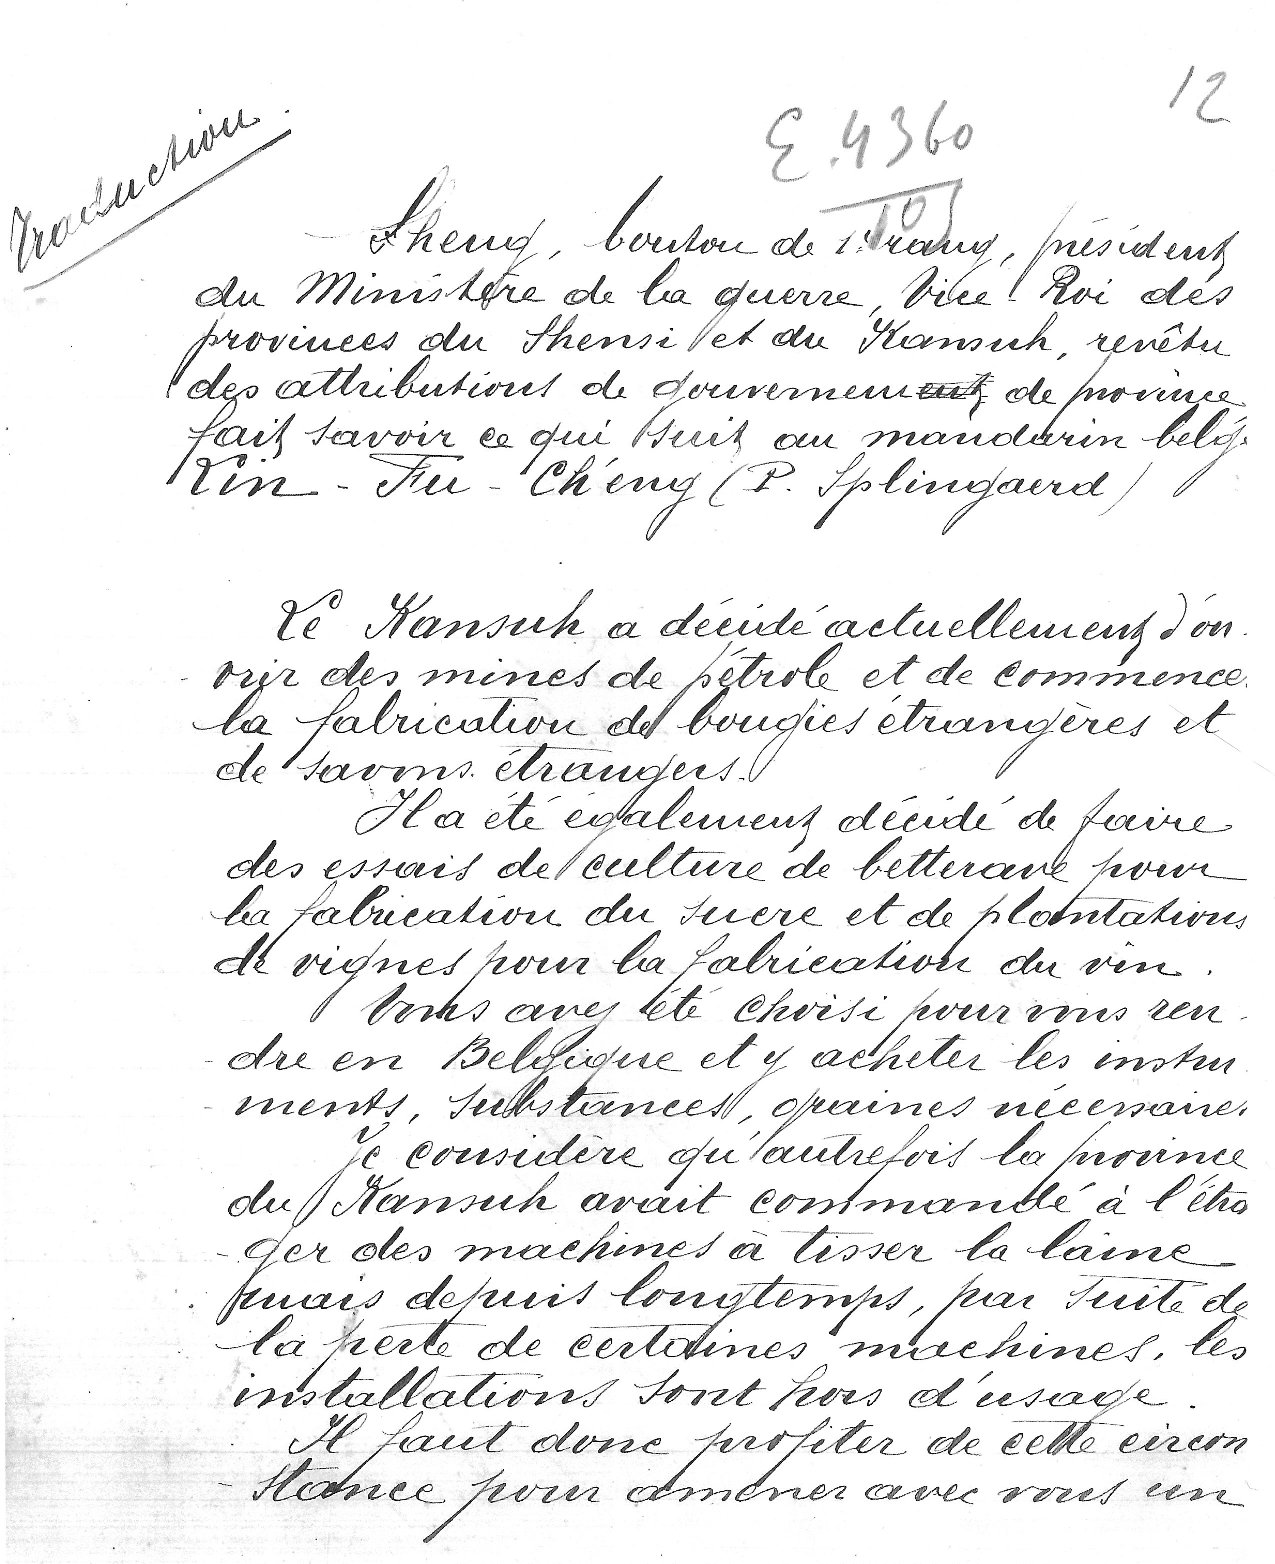 12
E. 4360
103
Traduction.
Sheng, bouton de 1er rang, président
du Ministère de la guerre, Vice-Roi des
provinces du Shensi et du Kansuh, revêtu
des attributions de gouvernement de province
fait savoir ce qui suit au mandarin belge
Lin - Fu - Ch'eng (P. Splingaerd)
Le Kansuh a décidé actuellement d'ou-
vrir des mines de pétrole et de commence
la fabrication de bougies étrangères et
de savons étrangers.
Il a été également décidé de faire
des essais de culture de betterave pour
la fabrication du sucre et de plantations
de vignes pour la fabrication du vin.
Vous avez été choisi pour vous ren-
dre en Belgique et y acheter les instru
ments, substances, graines nécessaires
Je considère qu'autrefois la province
du Kansuh avait commandé à l'étra
ger des machines à tisser la laine
mais depuis longtemps, par suite de
la perte de certaines machines, les
installations sont hors d'usage.
Il faut donc profiter de cette circon
stance pour amener avec vous un